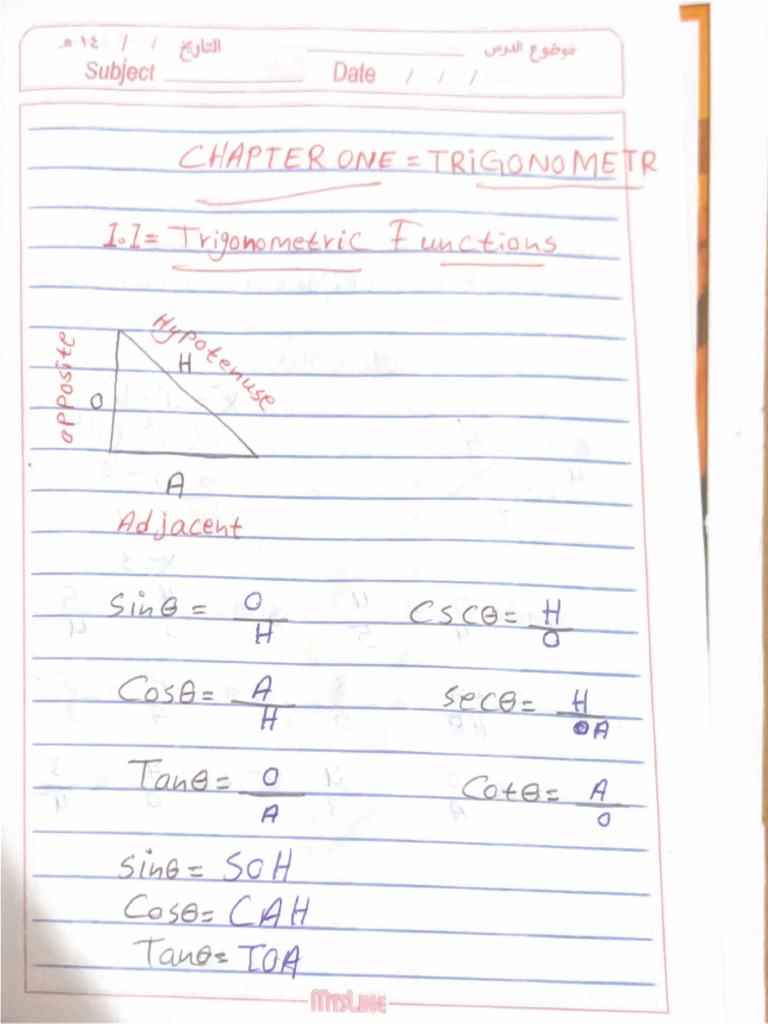 موضوع الدرس التاريخ / / ١٤ هـ
Subject Date / / /
CHAPTER ONE = TRIGONOMETR
1.1= Trigonometric Functions
Hypotenuse
opposite
H
O
A
Adjacent
Sinθ = O/H Cscθ= H/O
Cosθ= A/H secθ= H/A
Tanθ= O/A Cotθ= A/O
Sinθ= SOH
Cosθ= CAH
Tanθ= TOA